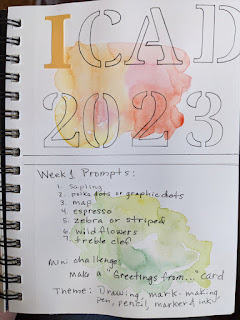 ICAD
2023
Week 1 Prompts:
1. Sapling
2. polka dots or graphic dots
3. map
4. espresso
5. zebra or striped
6. wildflowers
7. treble clef
mini challenge:
make a "Greetings from..." card
Theme: Drawing, mark-making
pen, pencil, marker & ink